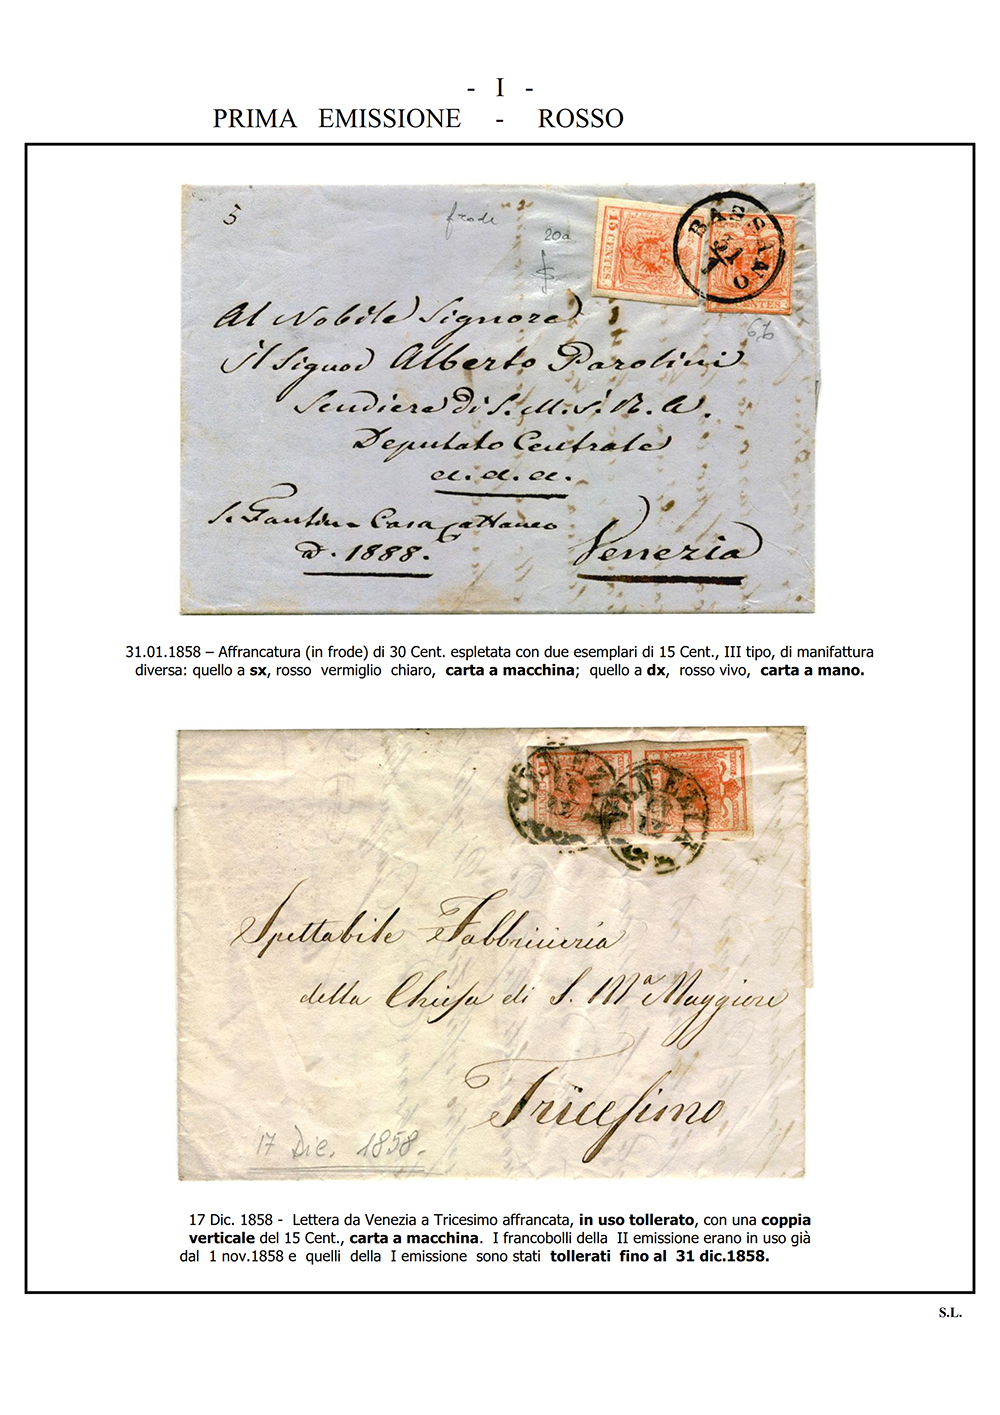 - I -
PRIMA EMISSIONE - ROSSO
5
frode
20a
15 CENTES
BASSANO
31
CENTES
6b
Al Nobile Signore
il Signor Alberto Parolini
Al Deputato Centrale
a.d.a.
S. Fantin Casa Cattaneo
N. 1888.
Venezia
31.01.1858 – Affrancatura (in frode) di 30 Cent. espletata con due esemplari di 15 Cent., III tipo, di manifattura
diversa: quello a sx, rosso vermiglio chiaro, carta a macchina; quello a dx, rosso vivo, carta a mano.
VENEZIA
VENEZIA
Spettabile Fabbriceria
della Chiesa di S. Mª Maggiore
Tricesimo
17 Dic. 1858.
17 Dic. 1858 - Lettera da Venezia a Tricesimo affrancata, in uso tollerato, con una coppia
verticale del 15 Cent., carta a macchina. I francobolli della II emissione erano in uso già
dal 1 nov.1858 e quelli della I emissione sono stati tollerati fino al 31 dic.1858.
S.L.